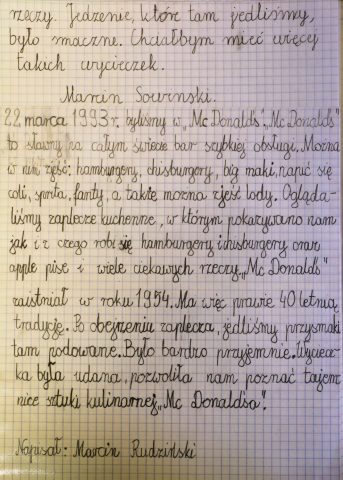 rzeczy. Jedzenie, które tam jedliśmy,
było smaczne. Chciałbym mieć więcej
takich wycieczek.
Marcin Sowinski.
22 marca 1993 r. byliśmy w „Mc Donald's". „Mc Donald's"
to sławny na całym świecie bar szybkiej obsługi. Można
w nim zjeść: hamburgery, chisburgery, big maki, napić się
coli, sprita, fanty, a także mozna zjeść lody. Ogląda-
liśmy zaplecze kuchenne, w którym pokazywano nam
jak i z czego robi się hamburgery i chisburgery oraz
apple pise i wiele ciekawych rzeczy. „Mc Donald's"
zaistniał w roku 1954. Ma więc prawie 40 letnią
tradycję. Po obejrzeniu zaplecza, jedliśmy przysmaki
tam podawane. Było bardzo przyjemnie. Wyciecz-
ka była udana, pozwoliła nam poznać tajem-
nice sztuki kulinarnej „Mc Donaldsa".
Napisał: Marcin Rudziński